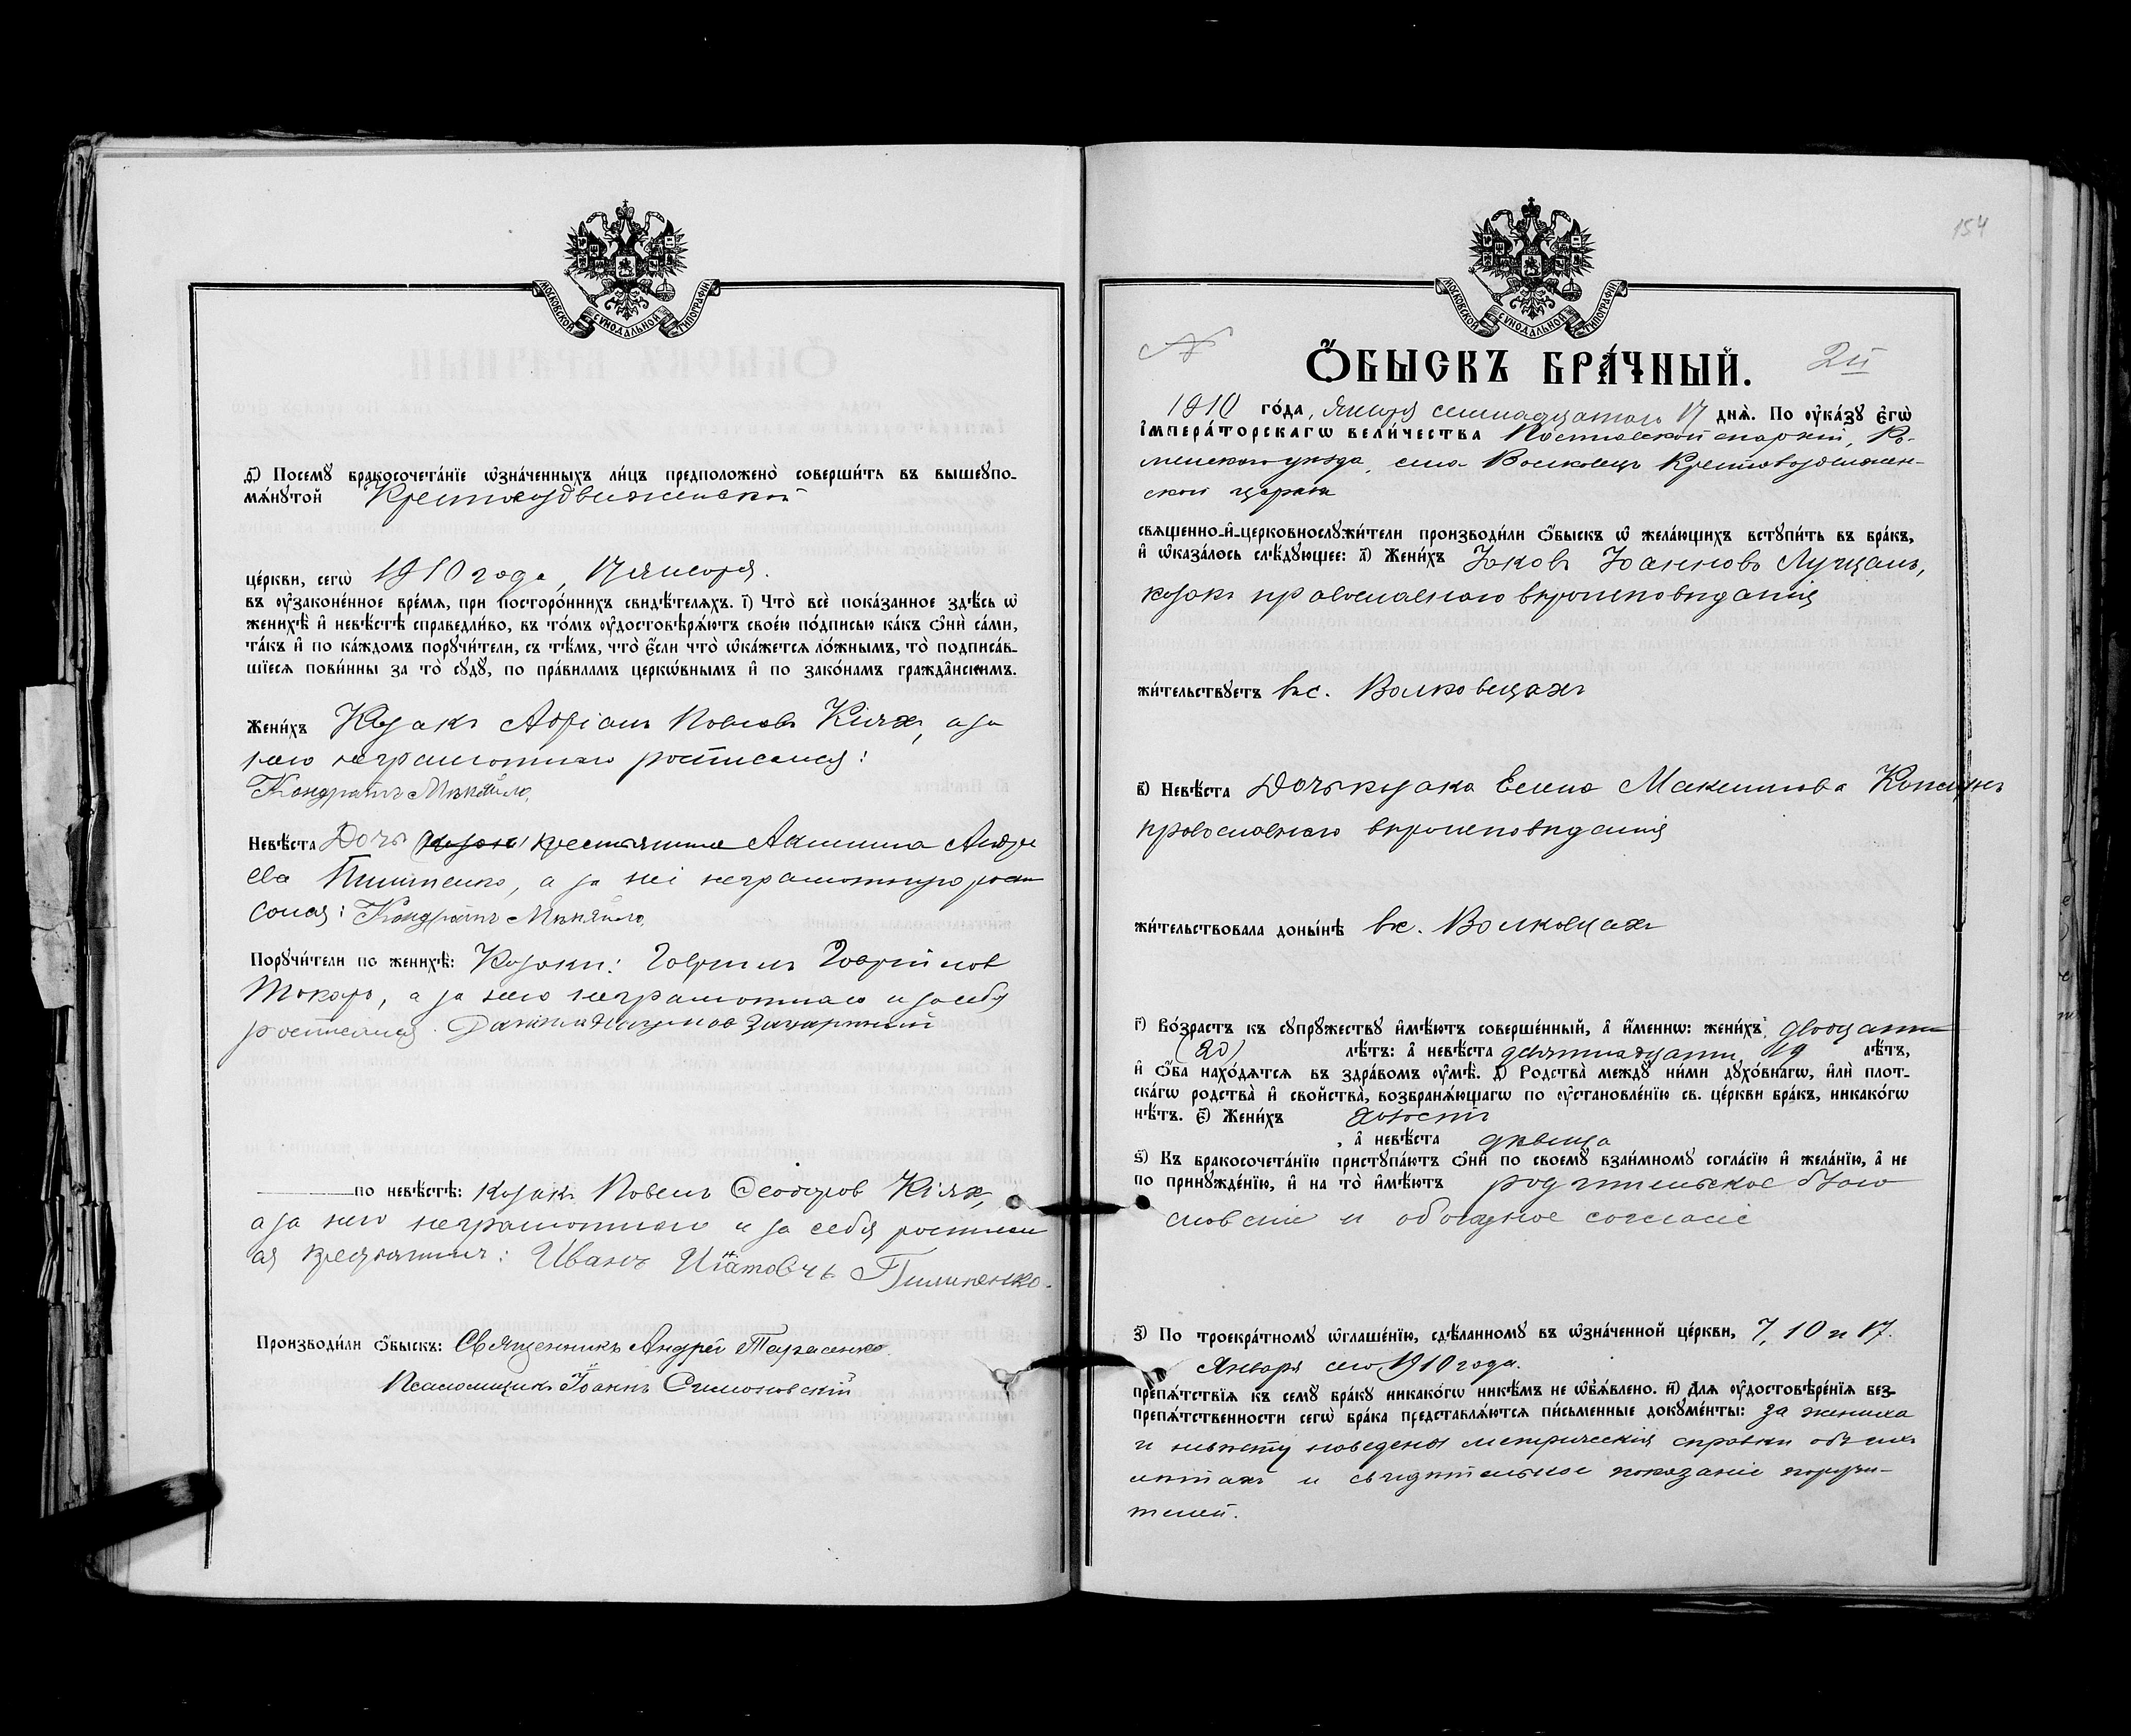 МОСКОВСКОЙ СѴНОДАЛЬНОЙ ТИПОГРАФІИ
Посемꙋ бракосочета́нїе ѡ҆зна́ченныхъ ли́цъ предположено̀ соверши́ть въ вышеꙋпо-
мѧ́нꙋтой Крестовоздвиженской
це́ркви, сегѡ̀ 1910 года, 17 января.
въ ᲂу҆законе́нное вре́мѧ, при посторо́ннихъ свидѣ́телѧхъ. і҃) Что̀ всѐ пока́занное здѣ́сь ѡ҆
женихѣ̀ и҆ невѣ́стѣ справедли́во, въ то́мъ ᲂу҆достовѣрѧ́ютъ свое́ю по́дписью ка́къ ѻ҆нѝ са́ми,
та́къ и҆ по ка́ждомъ порꙋчи́тели, съ тѣ́мъ, что̀ є҆́сли что̀ ѡ҆ка́жетсѧ ло́жнымъ, то̀ подписа́в-
шїесѧ пови́нны за то̀ сꙋдꙋ̀, по пра́виламъ церкѡ́внымъ и҆ по зако́намъ гражда̂нскимъ.
Жени́хъ Козакъ Адріанъ Павловъ Кіяхъ, а за
него неграмотнаго росписался:
Кондратъ Мѣняйло.
Невѣ́ста Дочь крестьянина Акилина Андре
ева Пилипенко, а за неё неграмотную роспи
сался: Кондратъ Мѣняйло.
Порꙋчи́тели по женихѣ̀: Козаки: Гавриилъ Гавриилов
Токарь, а за него неграмотнаго и за себя
росписался
по невѣ́стѣ: козакъ Павелъ Ѳеодоров Кіяхъ,
а за него неграмотнаго и за себя росписал
ся крестьянинъ: Иванъ Пилипенко.
Производи́ли ѻ҆́быскъ: Священникъ Андрей Тарасенко.
Псаломщикъ Іоаннъ Симоновскій
154
МОСКОВСКОЙ СѴНОДАЛЬНОЙ ТИПОГРАФІИ
№ Ѻ҆́БЫСКЪ БРА́ЧНЫЙ. 2й
1910 го́да, января семнадцатаго 17 днѧ̀. По ᲂу҆ка́зꙋ є҆гѡ̀
і҆мпера́торскагѡ вели́чества Полтавской епархіи, Ро-
менскаго уѣзда, села Волковецъ Крестовоздвижен-
ской церкви
свѧщенно-и҆-церковнослꙋжи́тели производи́ли ѻ҆́быскъ ѡ҆ жела́ющихъ встꙋпи́ть въ бра́къ,
и҆ ѡ҆каза́лось слѣ́дꙋющее: а҃) Жени́хъ Іаковъ Іоанновъ Лущань,
козакъ православнаго вѣроисповѣданія
жи́тельствꙋетъ въ с. Волковцахъ
в҃) Невѣ́ста Дочь козака Елена Максимова
православнаго вѣроисповѣданія
жи́тельствовала доны́нѣ въ с. Волковцахъ
г҃) Во́зрастъ къ сꙋпрꙋ́жествꙋ и҆мѣ́ютъ соверше́нный, а҆ и҆́меннѡ: жени́хъ двадцати
(20) лѣ́тъ: а҆ невѣ́ста девятнадцати 19 лѣ́тъ,
и҆ ѻ҆́ба нахо́дѧтсѧ въ здра́вомъ ᲂу҆мѣ̀. д҃) Родства̀ междꙋ̀ ни́ми дꙋхо́внагѡ, и҆лѝ плот-
ска́гѡ родства̀ и҆ свойства̀, возбранѧ́ющагѡ по ᲂу҆становле́нїю св. це́ркви бра́къ, никако́гѡ
нѣ́тъ. є҃) Жени́хъ холостъ
, а҆ невѣ́ста дѣвица
ѕ҃) Къ бракосочета́нїю пристꙋпа́ютъ ѻ҆нѝ по своемꙋ̀ взаи́мномꙋ согла́сїю и҆ жела́нїю, а҆ не
по принꙋжде́нїю, и҆ на то̀ и҆мѣ́ютъ родительское благо
словеніе и обоюдное согласіе
з҃) По троекра́тномꙋ ѡ҆глаше́нїю, сдѣ́ланномꙋ въ ѡ҆зна́ченной це́ркви, 7, 10 и 17.
Января сего 1910 года.
препѧ́тствїѧ къ семꙋ̀ бра́кꙋ никако́гѡ никѣ́мъ не ѡ҆б̾ѧ́влено. и҃) Длѧ ᲂу҆достовѣре́нїѧ без-
препѧ́тственности сегѡ̀ бра́ка представлѧ́ютсѧ пи́сьменные докꙋме́нты: за жениха
и невѣсту наведены метрическія справки объ ихъ
лѣтахъ и свидѣтельное показаніе поручи-
телей.